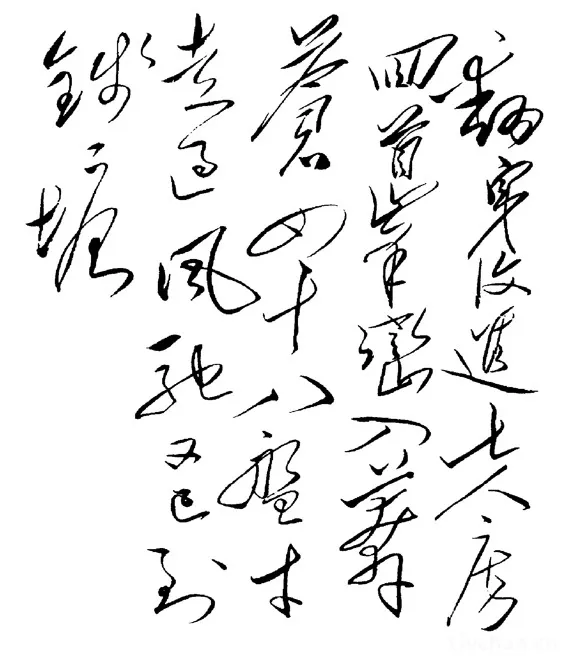 翻身復進七人房
回首峯巒入莽
蒼四十八盤才
走過風馳又已到
錢塘